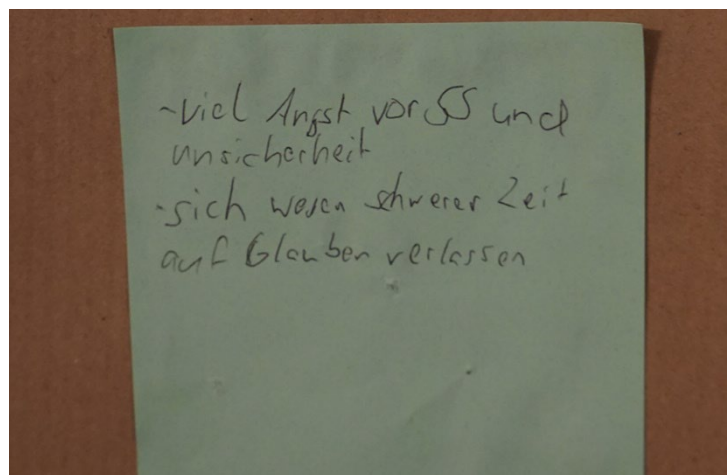 - viel Angst vor SS und
unsicherheit
- sich wegen schwerer Zeit
auf Glauben verlassen